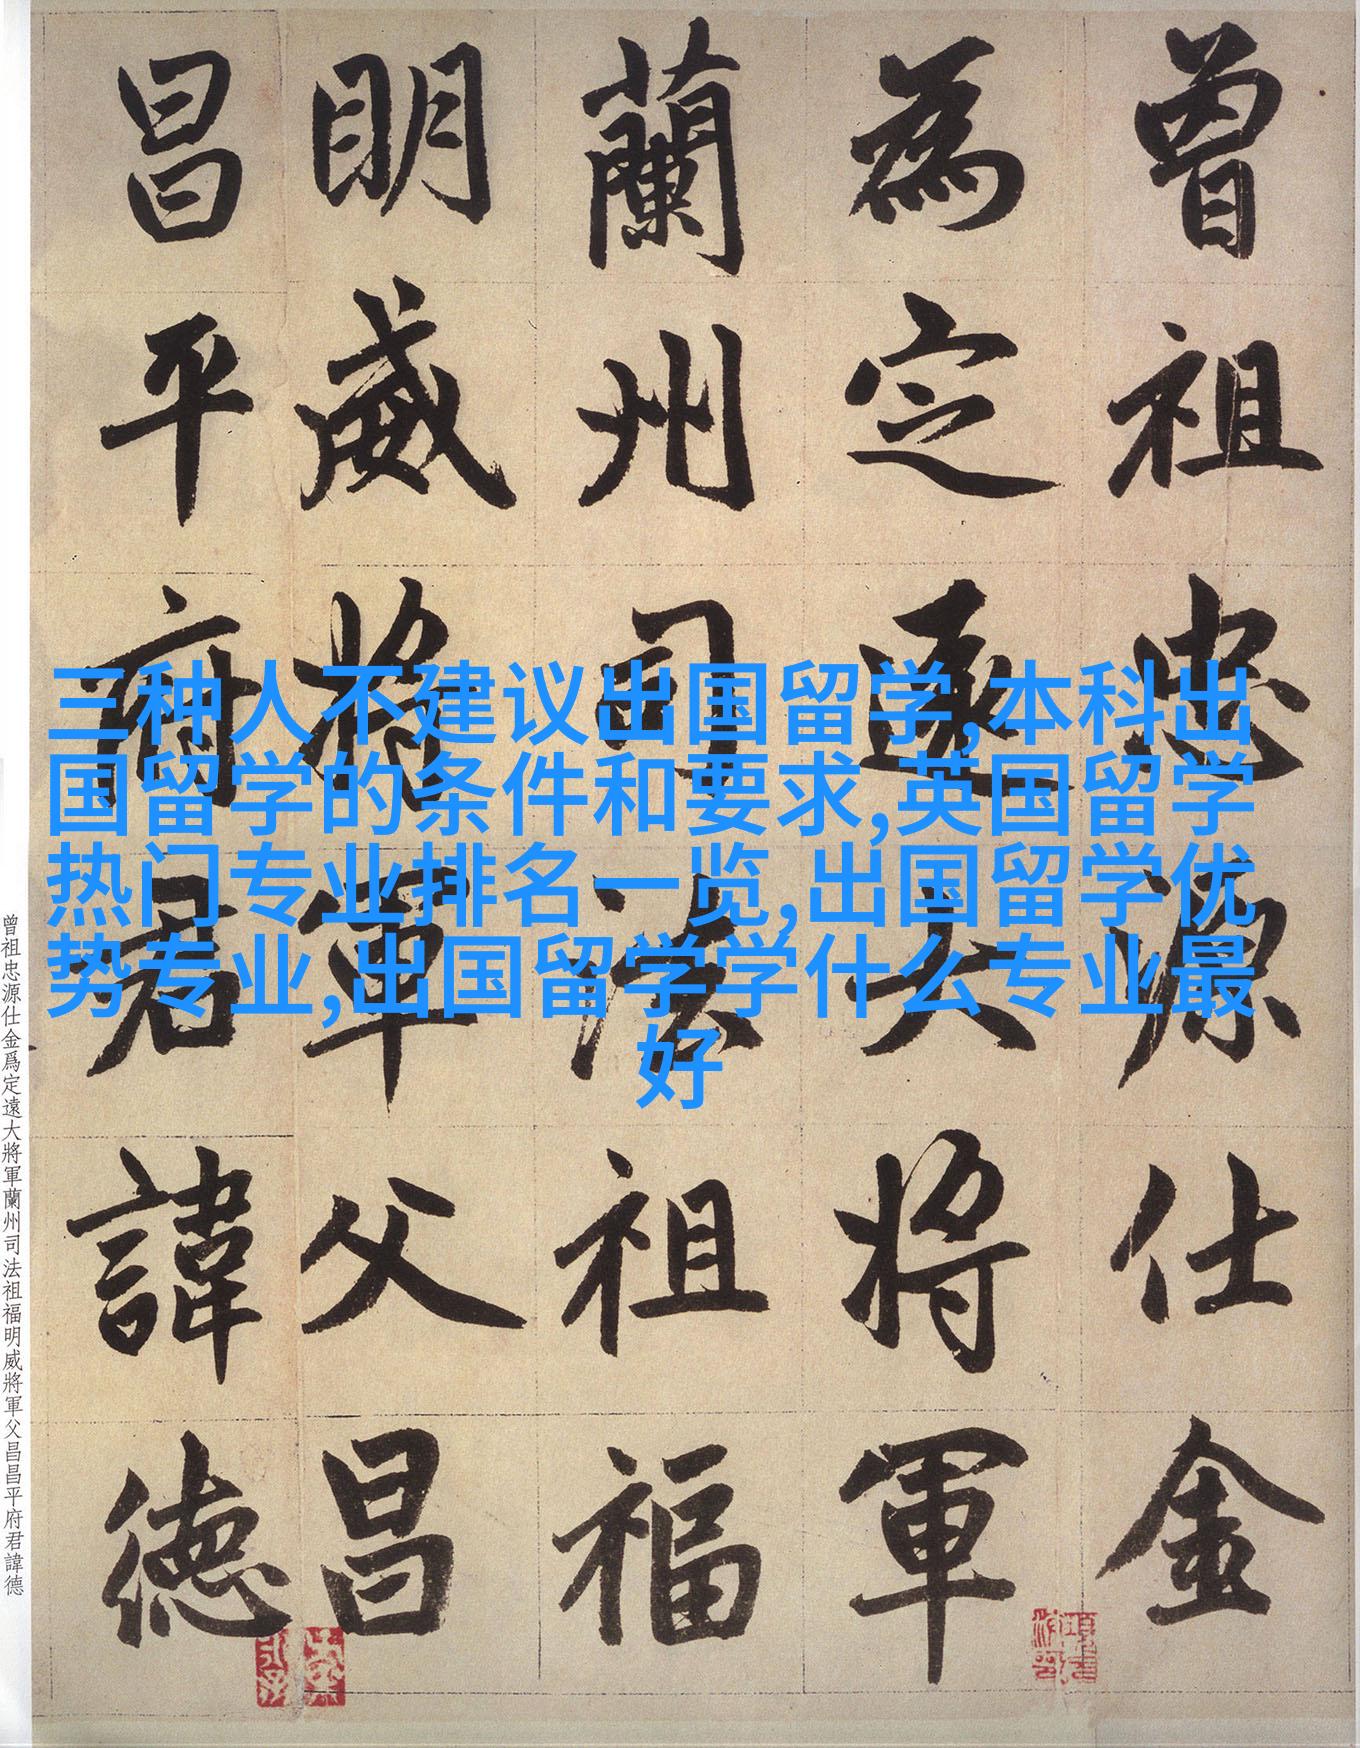 曾祖忠源仕金
為定遠大將軍
蘭州司法祖福
明威將軍父昌
昌平府君諱德
三种人不建议出国留学,本科出
国留学的条件和要求,英国留学
热门专业排名一览,出国留学优
势专业,出国留学学什么专业最
好
曾祖忠源仕金爲定遠大將軍蘭州司法祖福明威將軍父昌昌平府君諱德